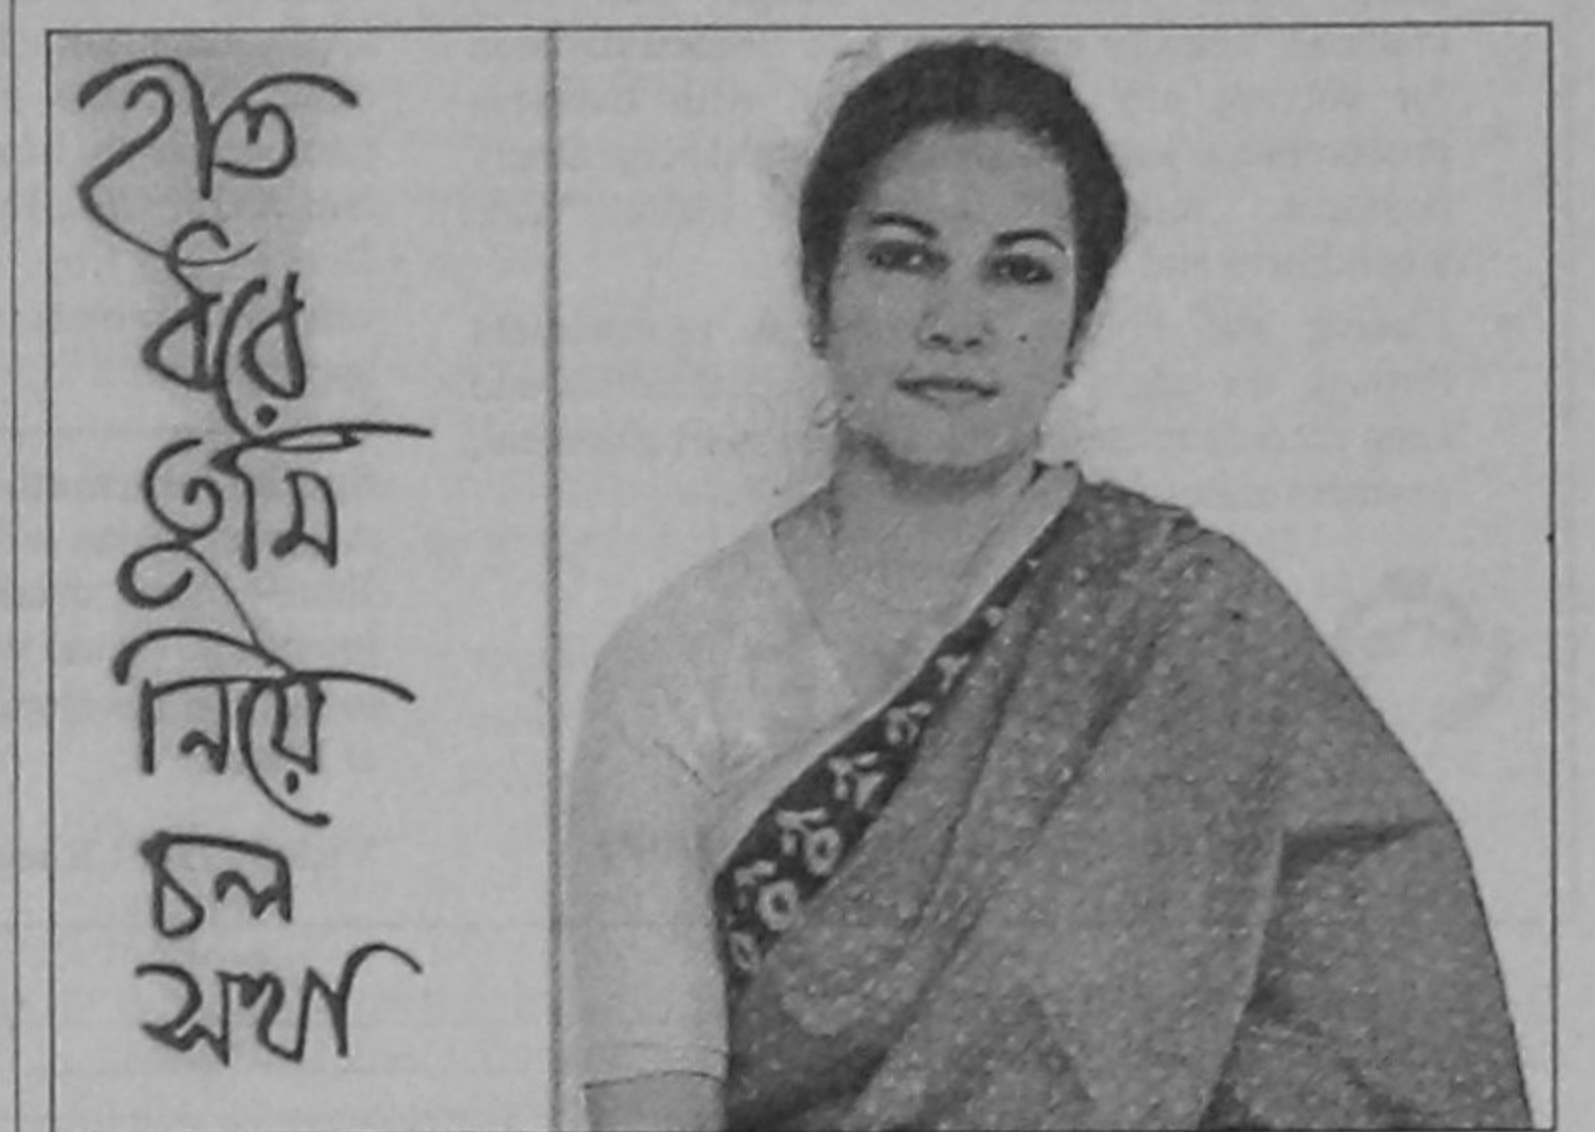 হাত
ধরে
তুমি
নিয়ে
চল
সখা